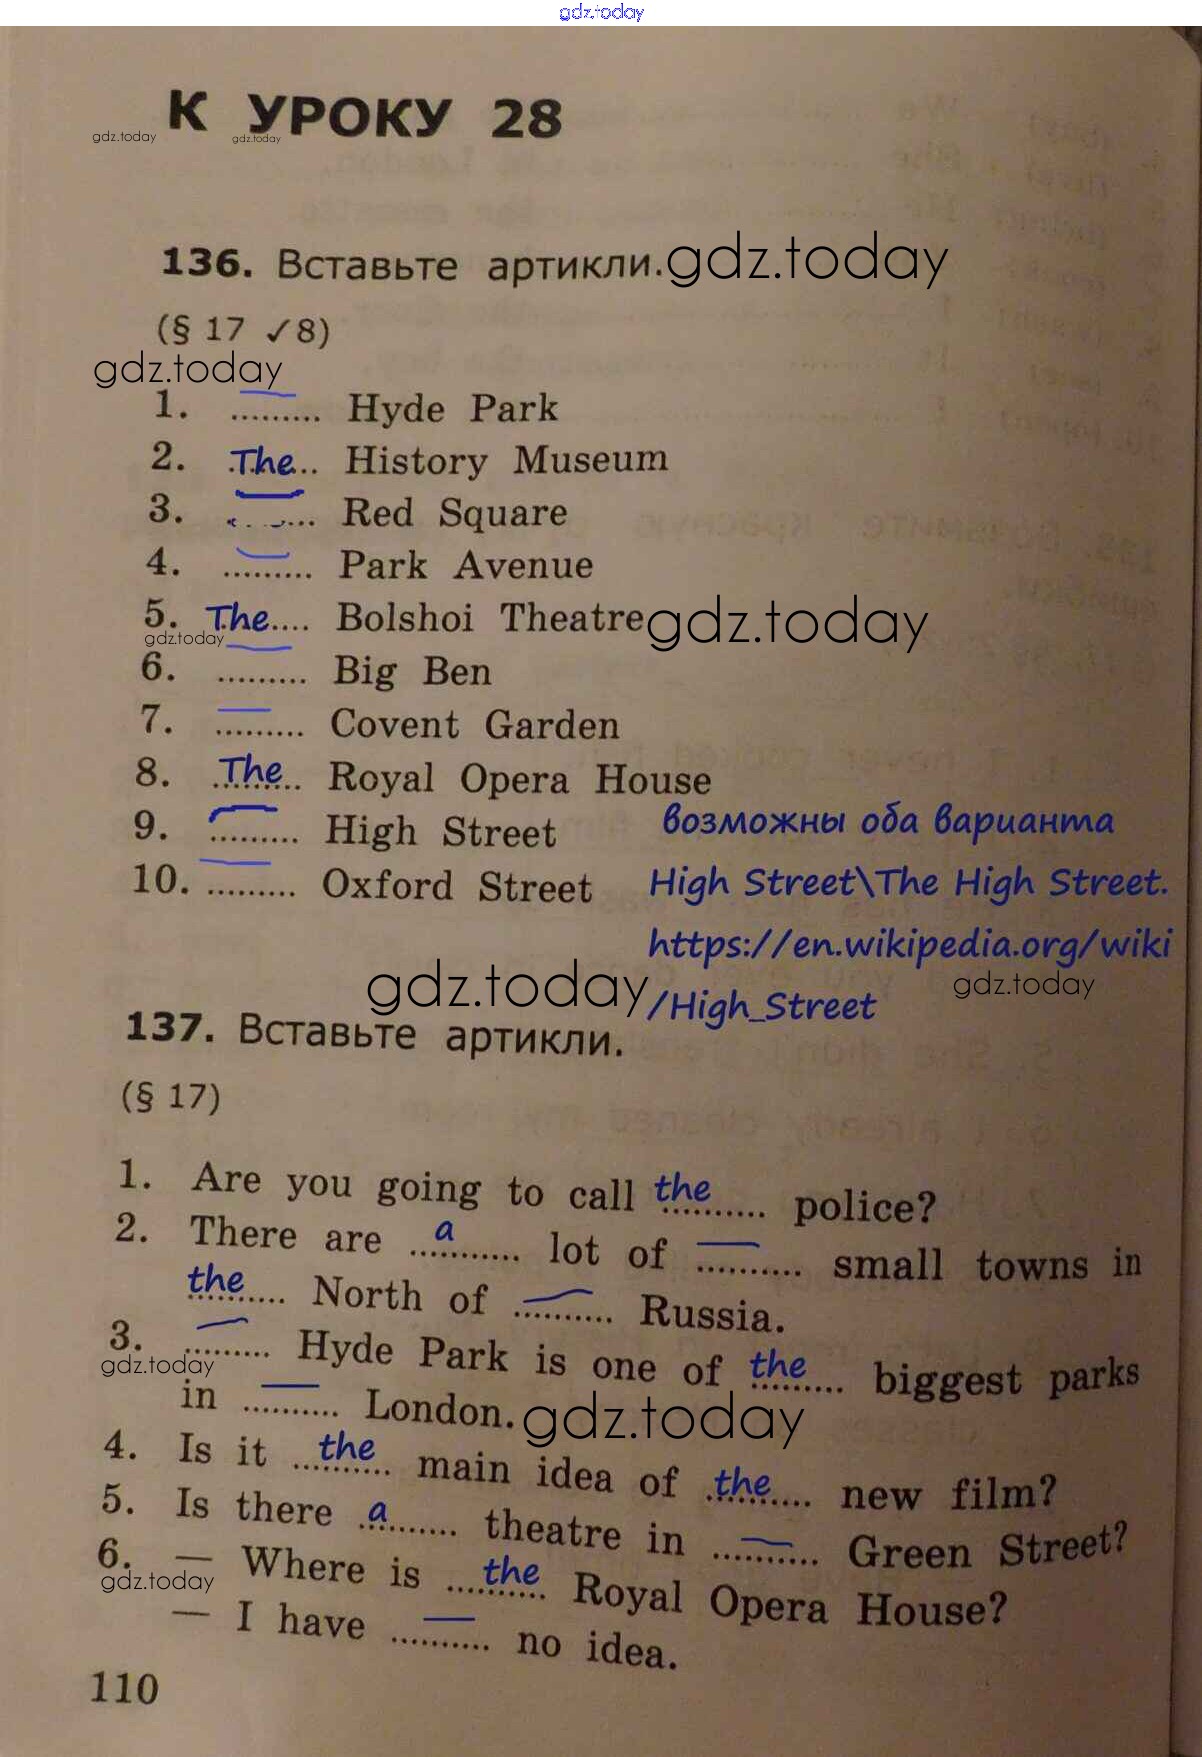 gdz.today
К УРОКУ 28
gdz.today gdz.today
136. Вставьте артикли. gdz.today
(§ 17 ✓8)
gdz.today
1. ......... Hyde Park
2. .The... History Museum
3. ......... Red Square
4. ......... Park Avenue
5. The.... Bolshoi Theatre gdz.today
gdz.today
6. ......... Big Ben
7. ......... Covent Garden
8. The ......... Royal Opera House
9. ......... High Street возможны оба варианта
10. ......... Oxford Street High Street\The High Street.
https://en.wikipedia.org/wiki
gdz.today gdz.today
/High_Street
137. Вставьте артикли.
(§ 17)
1. Are you going to call the .......... police?
2. There are a .......... lot of .......... small towns in
the .......... North of .......... Russia.
3. ......... Hyde Park is one of the ......... biggest parks
gdz.today
in .......... London. gdz.today
4. Is it the .......... main idea of the .......... new film?
5. Is there a .......... theatre in .......... Green Street?
6. — Where is the .......... Royal Opera House?
gdz.today
— I have .......... no idea.
110